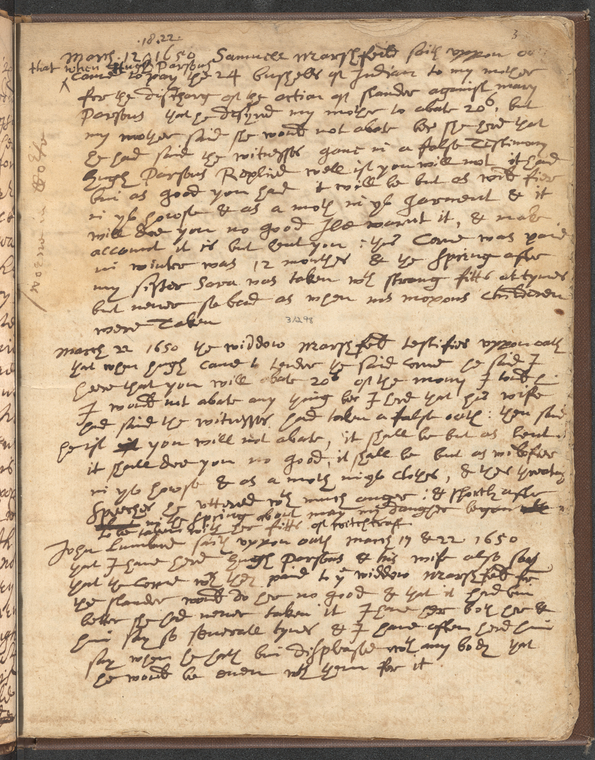 .18.22.
March 12 1650 Samuell Marshfeild saith uppon
that when Hugh Parsons
Came to pay the 24 bushells of Indian to my mother
for the discharg of the action of slander against mary
Parsons that he desyred my mother to abate 20s, but
my mother said she would not abate bec she herd that
he had said the witnesses gave in a false Testimony
Hugh Parsons Replied well if you will not it had
bin as good you had it will be but as wild fier
in yr howse & as a moth in yr garment & it
will doe you no good Ile warrnt it, & make
accownt it is but lent you : this Corne was paid
in winter was 12 months & the Spring after
my sister Sara was taken wth strong fitts at tymes
but never so bad as when mr moxons Children
were Taken
3 A2 98
March 22 1650 the widdow Marshfeild testifies uppon oath
that when Hugh Came to tender the said Corne he said I
here that you will abate 20s of the mony I tould
I would not abate any thing bec I herd that his wife
had said the witnesses had taken a false oath: then said
he if you will not abate, it shall be but as lent
it shall doe you no good, it shall be but as wildfier
in yr howse & as a moth in yr clothes, & thes threatning
Speeches he uttered wth much anger : & shortly after
in the Spring about may my daughter began
to be taken with her fitts of witchcraft
John Lumbard saith uppon oath March 17 & 22 1650
that I have herd Hugh Parsons & his wife also say
that the Corne wch they paid to ye widdow Marshfeild for
the slander would do her no good & that it had bin
better she had never taken it I have herd both her &
him say so severall tymes & I have often herd him
say when he hath bin displeased with any body that
he would be even wth them for it